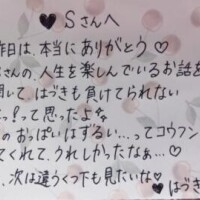 ♥Sさんへ
昨日は、本当にありがとう♡
さんの、人生を楽しんでいるお話を
聞いて はづきも負けてられない
っ!って思ったよな
のおっぱいはずるい...ってコウフン
てくれて、うれしかったなぁ…♡
、次は違うくつ下も見たいな♡
♥はづき